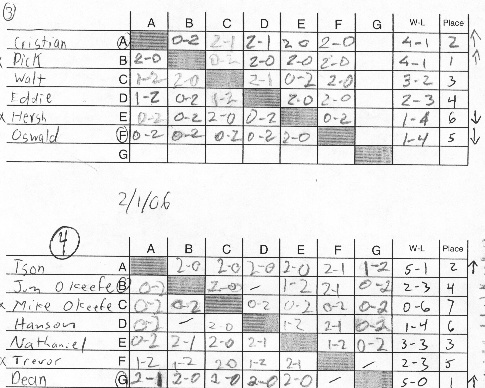 3
A B C D E F G W-L Place
Cristian A 0-2 2-1 2-1 2-0 2-0 4-1 2 ↑
x Dick B 2-0 0-2 2-0 2-0 2-0 4-1 1 ↑
Walt C 1-2 2-0 2-1 0-2 2-0 3-2 3
Eddie D 1-2 0-2 1-2 2-0 2-0 2-3 4
x Hersh E 0-2 0-2 2-0 0-2 0-2 1-4 6 ↓
Oswald F 0-2 0-2 0-2 0-2 2-0 1-4 5 ↓
G
2/1/06
4
A B C D E F G W-L Place
Ison A 2-0 2-0 2-0 2-0 2-1 1-2 5-1 2 ↑
Jim O'Keefe B 0-2 2-0 - 1-2 2-1 0-2 2-3 4
x Mike O'Keefe C 0-2 0-2 0-2 0-2 0-2 0-2 0-6 7
Hanson D 0-2 - 2-0 1-2 2-1 0-2 1-4 6
Nathaniel E 0-2 2-1 2-0 2-1 1-2 0-2 3-3 3
x Trevor F 1-2 1-2 2-0 1-2 2-1 - 2-3 5
Dean G 2-1 2-0 2-0 2-0 2-0 - 5-0 ↑